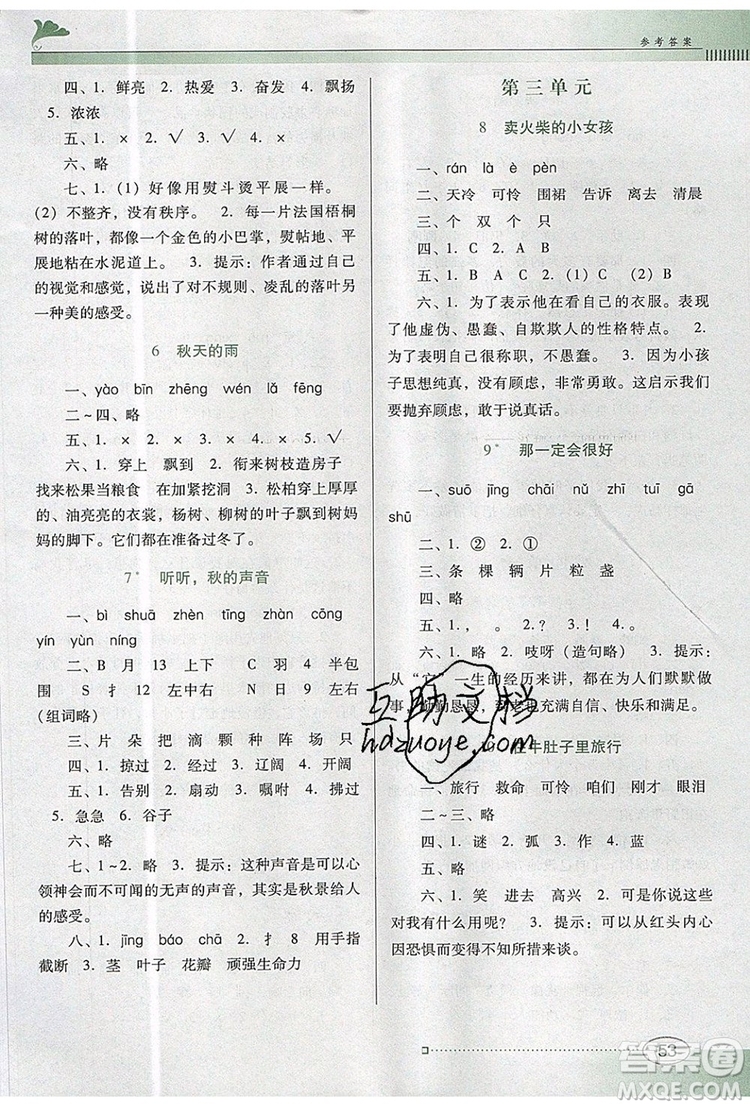 参考答案
四、1. 鲜亮 2. 热爱 3. 奋发 4. 飘扬
5. 浓浓
五、1. × 2. √ 3. √ 4. ×
六、略
七、1. (1) 好像用熨斗烫平展一样。
(2) 不整齐，没有秩序。 2. 每一片法国梧桐
树的落叶，都像一个金色的小巴掌，熨帖地、平
展地粘在水泥道上。 3. 提示：作者通过自己
的视觉和感觉，说出了对不规则、凌乱的落叶另
一种美的感受。
6 秋天的雨
一、yào bīn zhēng wén lǎ fēng
二～四、略
五、1. × 2. √ 3. × 4. × 5. √
六、1. 穿上 飘到 2. 衔来树枝造房子
找来松果当粮食 在加紧挖洞 3. 松柏穿上厚厚
的、油亮亮的衣裳，杨树、柳树的叶子飘到树妈
妈的脚下。它们都在准备过冬。
7* 听听，秋的声音
一、bì shuā zhèn tīng zhàn cōng
yín yùn níng
二、B 月 13 上下 C 羽 4 半包
围 S 扌 12 左中右 N 日 9 左右
(组词略)
三、片 朵 把 滴 颗 种 阵 场 只
四、1. 掠过 2. 叮咛 3. 辽阔 4. 开阔
五、1. 告别 2. 扇动 3. 暖暖 4. 拂过
5. 急急 6. 谷子
六、略
七、1～2. 略 3. 提示：这种声音是可以心
领神会而不可闻的无声的声音，其实是秋景给人
的感受。
八、1. jīng báo chā 2. 扌 8 用手指
截断 3. 茎 叶子 花瓣 顽强生命力
第三单元
8 卖火柴的小女孩
一、rán là è pèn
二、天冷 可怜 围裙 告诉 离去 清晨
三、个 双 个 只
四、1. C 2. A B
五、1. B A C 2. (1) C (2) B
六、1. 为了表示他在看自己的衣服。表现
了他虚伪、愚蠢、自欺欺人的性格特点。 2.
为了表明自己很称职，不愚蠢。 3. 因为小孩
子思想纯真，没有顾虑，非常勇敢。这启示我们
要抛弃顾虑，敢于说真话。
9* 那一定会很好
一、suō jīng chāi nǔ zhī tuī gā
shū
二、1. ② 2. ①
三、条 棵 辆 片 粒 盏
四、略
五、1. ， 。 2. ？ 3. ！ 4. 。
六、1. 略 2. 吱呀 (造句略) 3. 提示：
从“它”一生的经历来讲，都在为人们默默做
事，勤勤恳恳，到老也充满自信、快乐和满足。
牛肚子里旅行
一、旅行 救命 可怜 咱们 刚才 眼泪
二～三、略
四、1. 谜 2. 弧 3. 作 4. 蓝
五、略
六、1. 笑 进去 高兴 2. 可是你说这些
对我有什么用呢？ 3. 提示：可以从红头内心
因恐惧而变得不知所措来谈。
互助文档
hdzuoye.com
53
答案圈
MXQE.COM